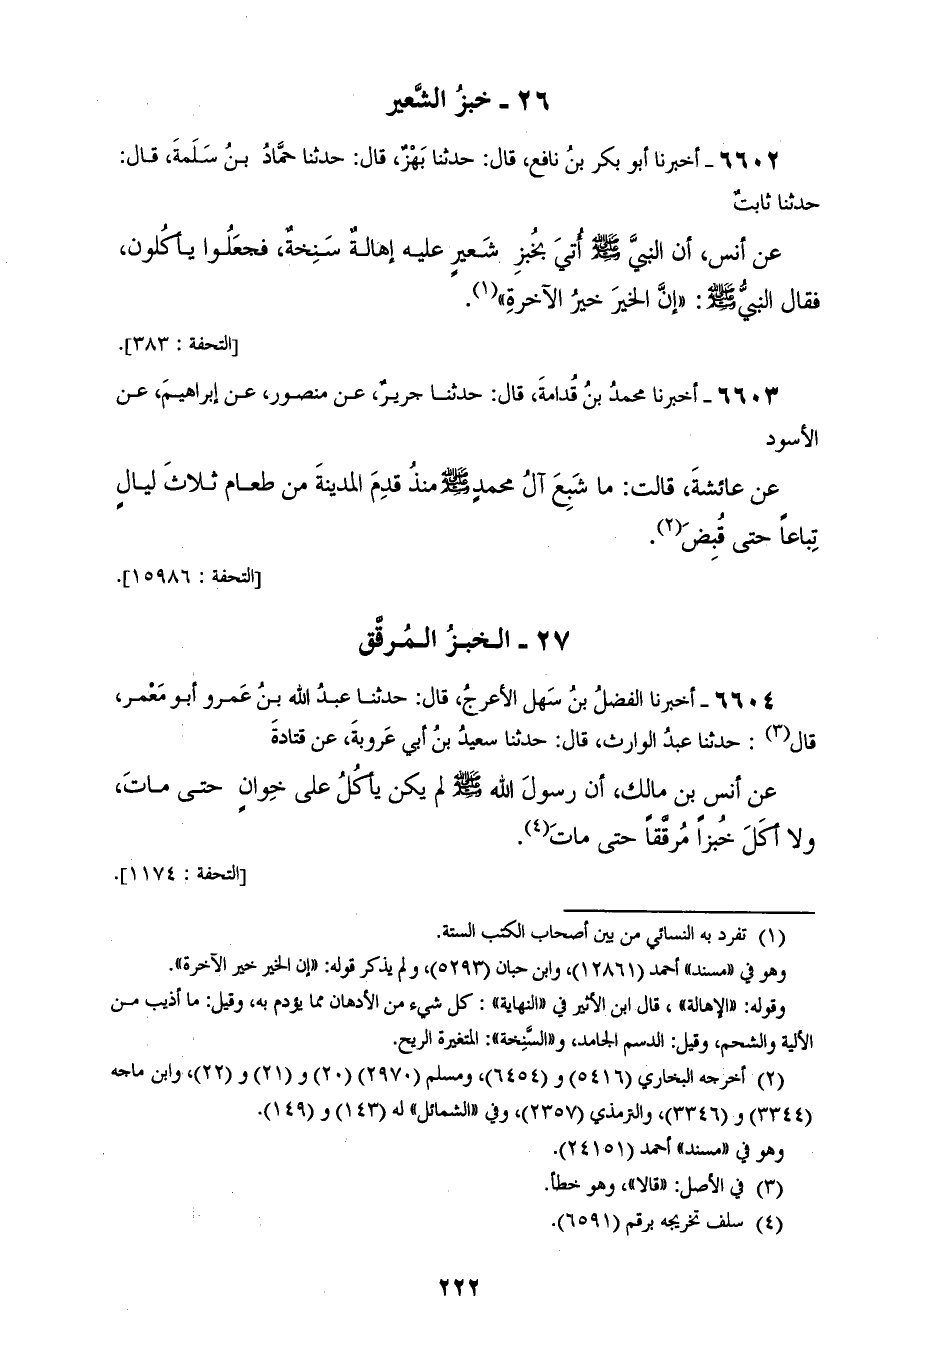 ٢٦ ـ خبزُ الشَّعير
٦٦٠٢ ـ أخبرنا أبو بكر بنُ نافع، قال: حدثنا بَهْزٌ، قال: حدثنا حمَّادُ بـنُ سَلَمةَ، قـال:
حدثنا ثابتٌ
عن أنس، أن النبيَّ ﷺ أُتيَ بخُبزِ شَـعيرٍ عليـه إهالـةٌ سَـنِخةٌ، فجعَلُـوا يـأكُلون،
فقال النبيُّ ﷺ : «إنَّ الخيرَ خيرُ الآخرةِ»(١).
[التحفة : ٣٨٣].
٦٦٠٣ ـ أخبرنا محمدُ بنُ قُدامةَ، قال: حدثنـا جريـرٌ، عـن منصـور، عـن إبراهيـمَ، عـن
الأسود
عن عائشةَ، قالت: ما شَبِعَ آلُ محمدٍ ﷺ منذُ قدِمَ المدينةَ من طعـام ثـلاثَ ليـالٍ
تِباعاً حتى قُبِضَ(٢).
[التحفة : ١٥٩٨٦].
٢٧ ـ الـخبـزُ الـمُرقَّق
٦٦٠٤ ـ أخبرنا الفضلُ بنُ سَهل الأعرجُ، قال: حدثنـا عبـدُ الله بـنُ عَمـرو أبـو مَعْمر،
قال(٣) : حدثنا عبدُ الوارث، قال: حدثنا سعيدُ بنُ أبي عَروبةَ، عن قتادةَ
عن أنس بن مالك، أن رسولَ الله ﷺ لم يكن يأكُلُ على خِوانٍ حتـى مـاتَ،
ولا أكَلَ خُبزاً مُرقَّقاً حتى ماتَ(٤).
[التحفة : ١١٧٤].
(١) تفرد به النسائي من بين أصحاب الكتب الستة.
وهو في «مسند» أحمد (١٢٨٦١)، وابن حبان (٥٢٩٣)، ولم يذكر قوله: «إن الخير خير الآخرة».
وقوله: «الإهالة» ، قال ابن الأثير في «النهاية» : كل شيء من الأدهان مما يؤدم به، وقيل: ما أذيب مـن
الألية والشحم، وقيل: الدسم الجامد، و«السَّنِخة»: المتغيرة الريح.
(٢) أخرجه البخاري (٥٤١٦) و (٦٤٥٤)، ومسلم (٢٩٧٠) (٢٠) و (٢١) و (٢٢)، وابن ماجه
(٣٣٤٤) و (٣٣٤٦)، والترمذي (٢٣٥٧)، وفي «الشمائل» له (١٤٣) و (١٤٩).
وهو في «مسند» أحمد (٢٤١٥١).
(٣) في الأصل: «قالا»، وهو خطأ.
(٤) سلف تخريجه برقم (٦٥٩١).
٢٢٢